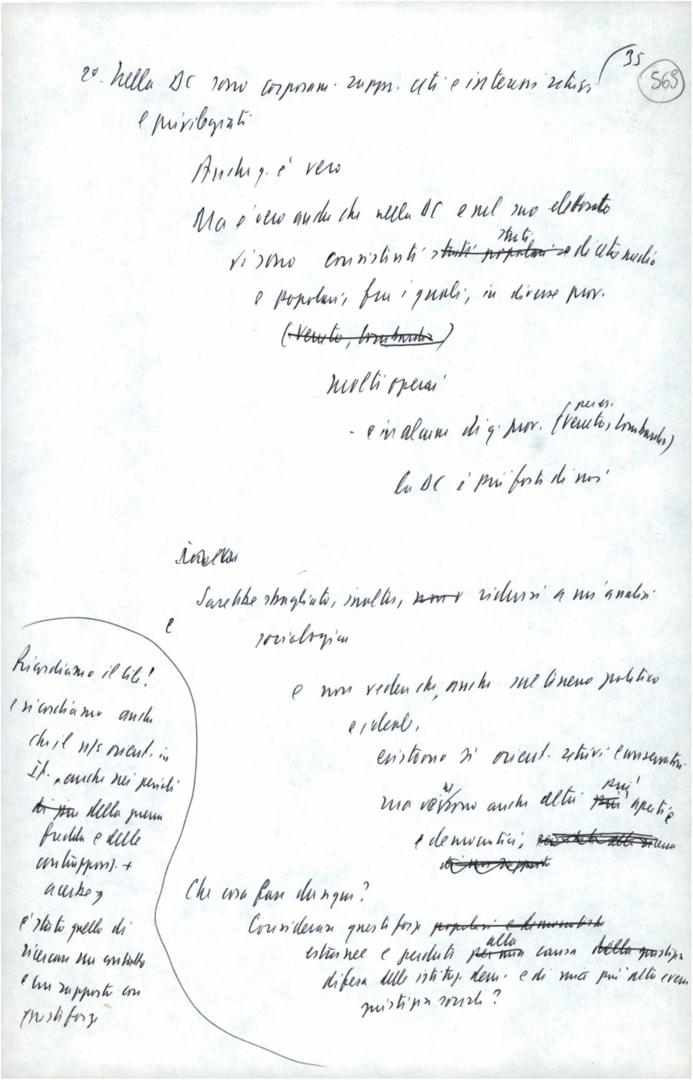 35
569
2º. Nella DC sono corposam. rappr. ceti e interessi retrivi
e privilegiati
Anche q. è vero
Ma è vero anche che nella DC e nel suo elettorato
strati
vi sono consistenti strati popolari e di ceto medio
e popolari, fra i quali, in diverse prov.
(Veneto, Lombardia)
molti operai
per es.
- e in alcune di q. prov. (Veneto, Lombardia)
la DC è più forte di noi
Inoltre
Sarebbe sbagliato, inoltre, ridursi a un'analisi
e
sociologica
e non vedere che, anche sul terreno politico
e ideale,
esistono sì orient. retrivi e conservatori
più
ma ve ne sono anche altri più aperti e
e democratici,
Che cosa fare dunque?
Considerare queste forze popolari e democratiche
alla
estranee e perdute per una causa della giustizia
difesa delle istituz. dem. e di una più alta
giustizia sociale?
Ricordiamo il Cile!
e ricordiamo anche
che il n/s orient. in
It., anche nei periodi
di più della guerra
fredda e delle
contrapposi. +
acerbe,
è stato quello di
ricercare un contatto
e un rapporto con
queste forze